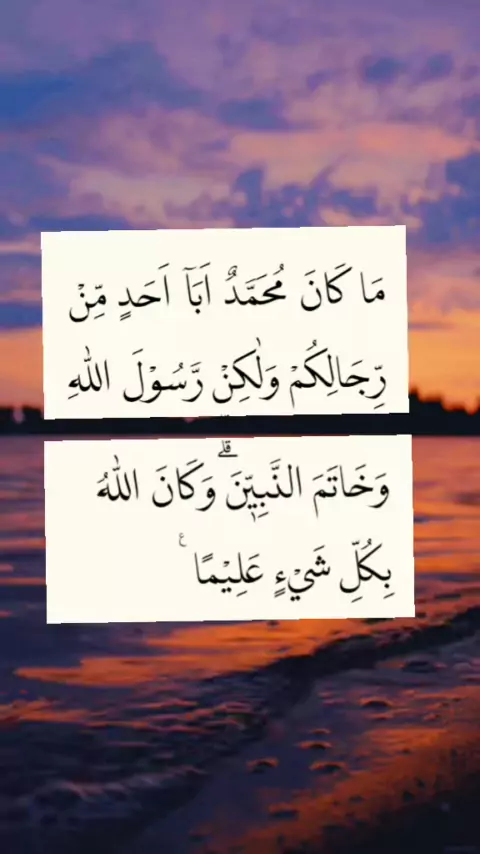 مَا كَانَ مُحَمَّدٌ اَبَآ اَحَدٍ مِّنْ
رِّجَالِكُمْ وَلٰكِنْ رَّسُوْلَ اللّٰهِ
وَخَاتَمَ النَّبِيّٖنَۗ وَكَانَ اللّٰهُ
بِكُلِّ شَيْءٍ عَلِيْمًا ࣖ